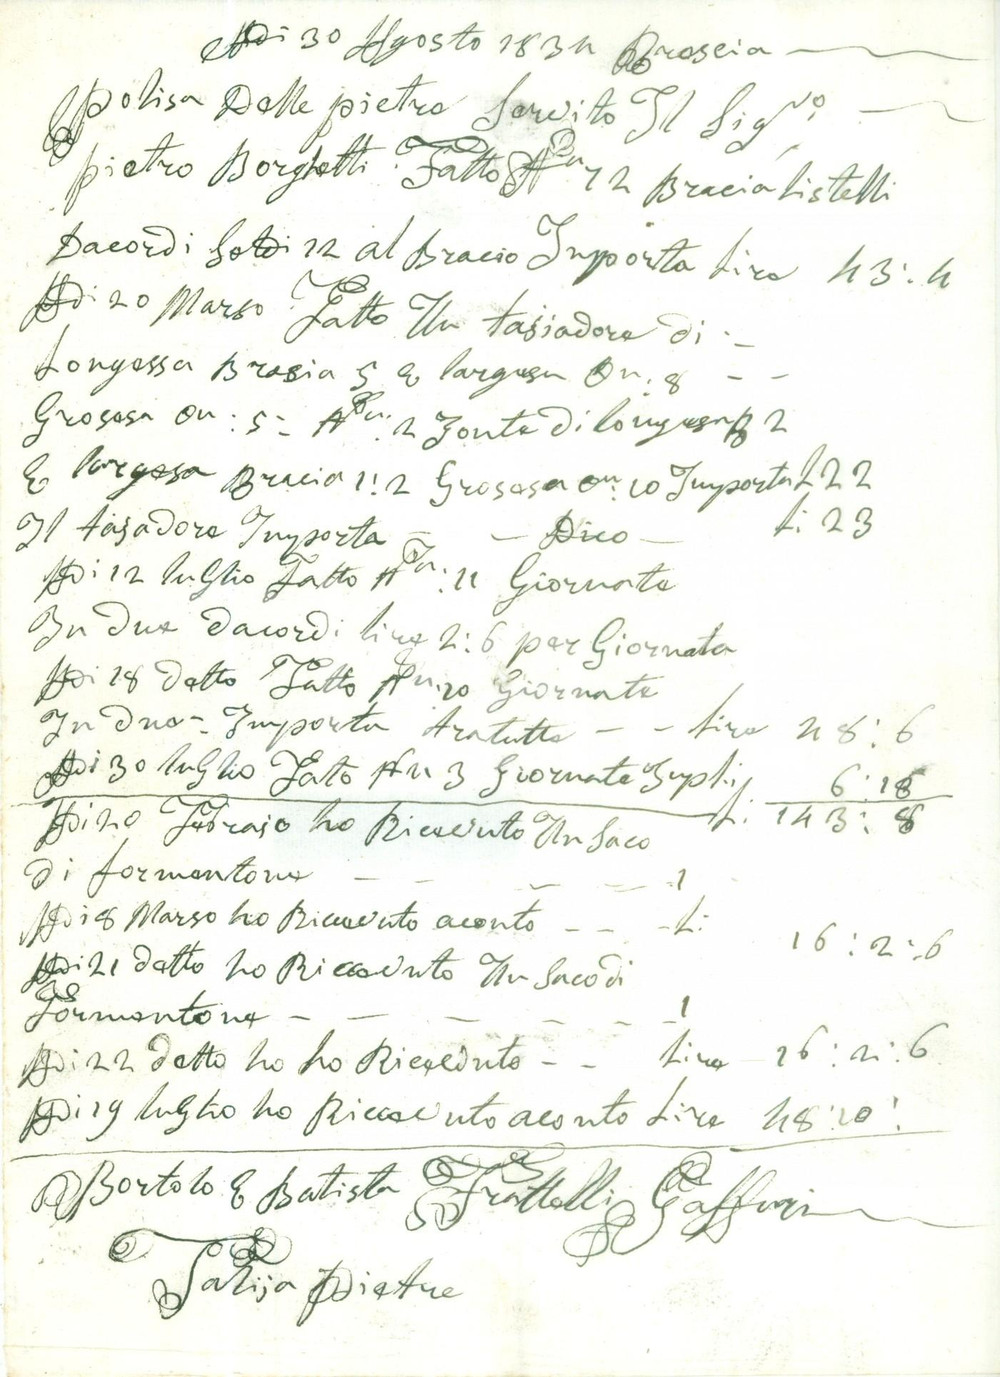 Adi 30 Agosto 1834 Brescia
Polisa Delle pietre Servito Il Sig.ro
pietro Borghetti Fatto A N.r 72 Bracia listelli
Dacordi Soldi 12 al Bracio Inporta lire 43:4
Adi 20 Marso Fatto Un tasiadore di :-
Longessa Bracia 5 E largesa On: 8 - -
Grosesa On: 5 - A N.r: 2 Fonte di longesa B 2
E largesa Bracia 1:2 Grosesa on: 10 Inporta L 22
Il tasadore Inporta - - Dico - L: 23
Adi 12 luglio Fatto A N.r: 11 Giornate
In due dacordi lire 2:6 per Giornata
Adi 18 detto Fatto A N. 10 Giornate
In due - Inporta tratutte - - Lire 48:6
Adi 30 luglio Fato A N 3 Giornate 6:18
L: 143:8
Adi 20 Febraio ho Riceevuto Un Saco
di formentone - - - - 1
Adi 8 Marso ho Riceevuto aconto - - - L: 16:2:6
Adi 21 detto ho Riceevuto Un Saco di
Formentone - - - - - 1
Adi 22 detto ho ho Riceeduto - - Lire 16:2:6
Adi 19 luglio ho Riceevuto aconto Lire 48:10:
Bortolo E Batista Frattelli Gaffuri
Talija Pietre